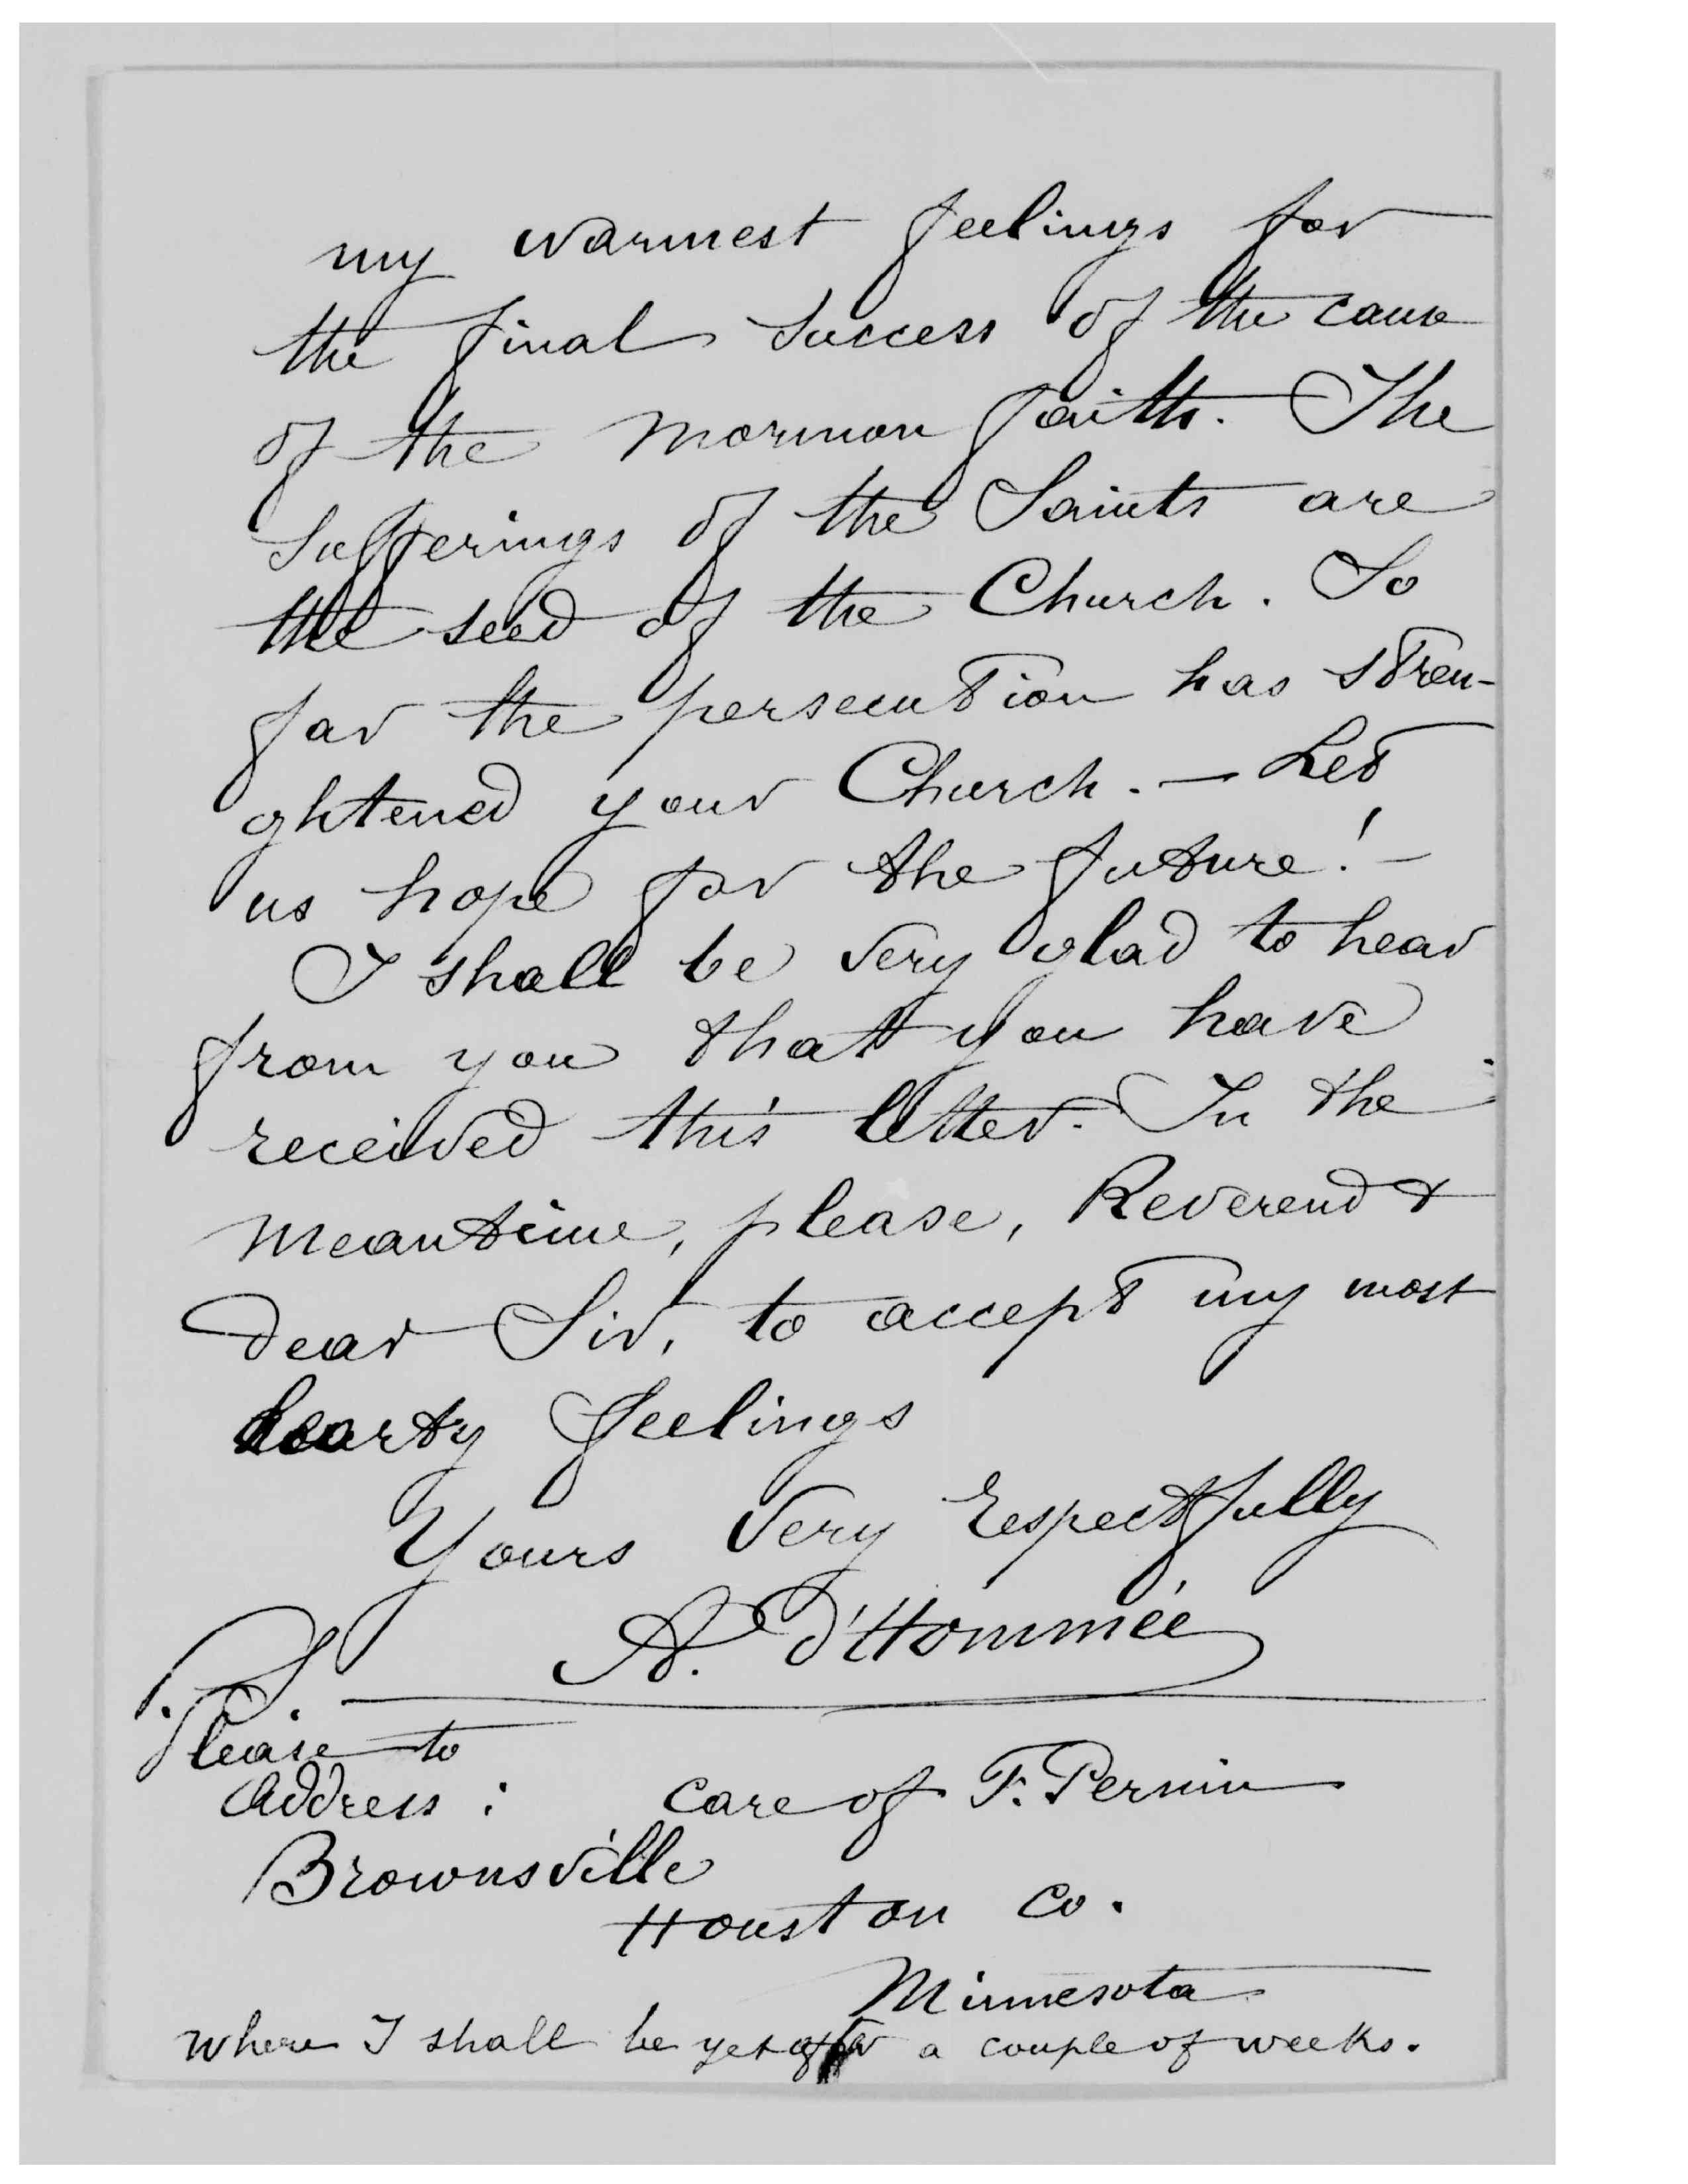 my warmest feelings for
the final success of the cause
of the Mormon faith. The
sufferings of the Saints are
the seed of the Church. So
far the persecution has stren-
ghtened your Church. — Let
us hope for the future! —
I shall be very glad to hear
from you that you have
received this letter. In the
meantime, please, Reverend &
dear Sir, to accept my most
hearty feelings
Yours very respectfully
A. d'Hommée
P.S.
Please to
address : care of F. Pernin
Brownsville
Houston Co.
Minnesota
where I shall be yet a couple of weeks.